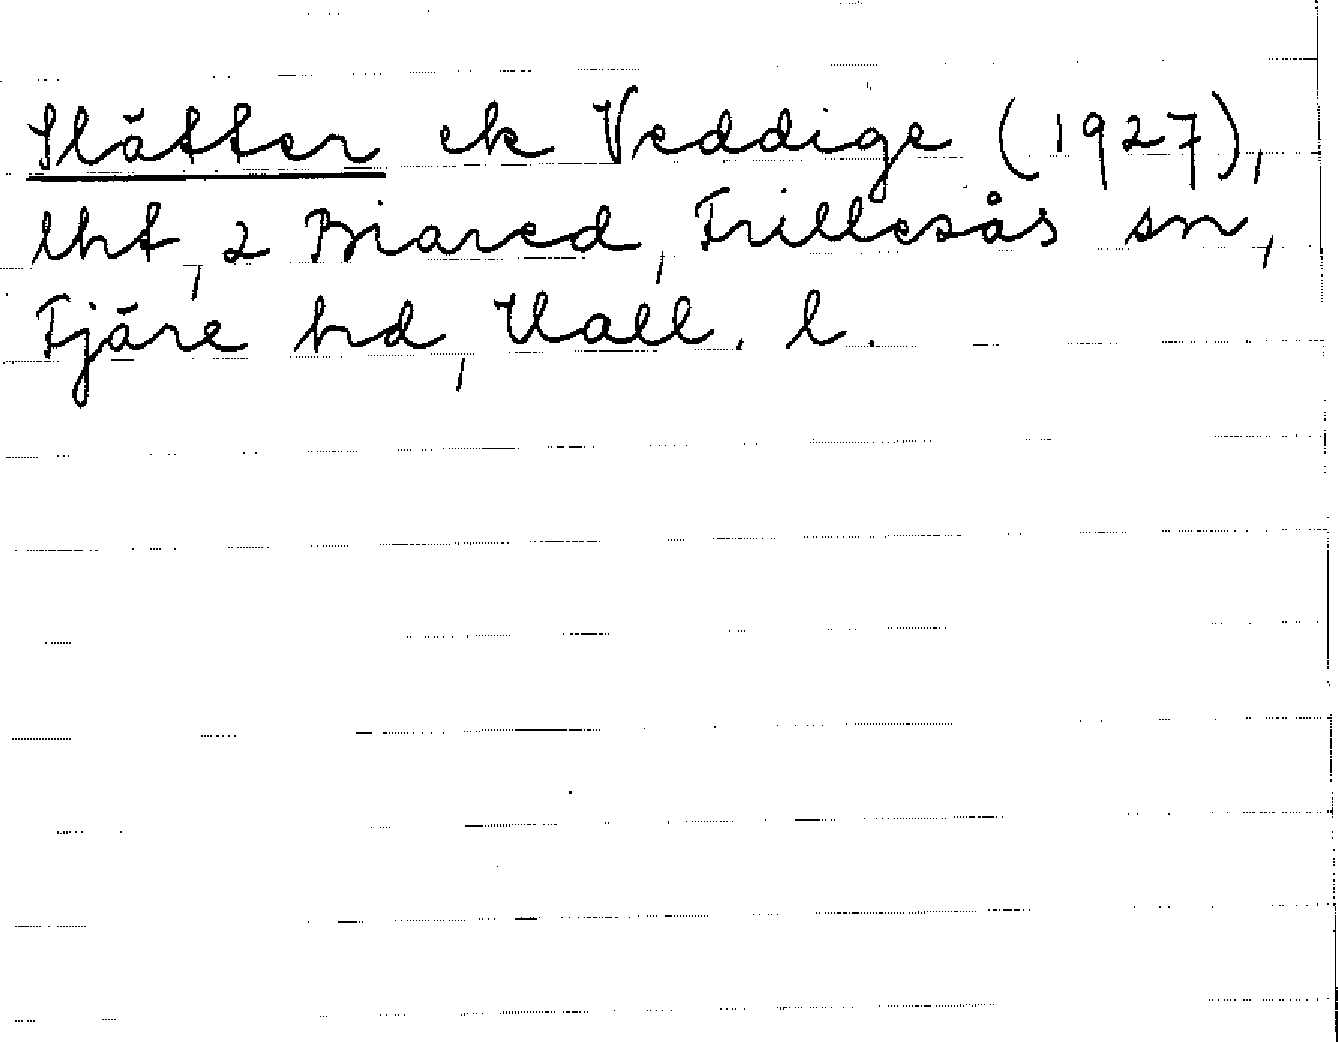 Slätter ek Veddige (1927),
lht, 2 Briared, Frillesås sn,
Fjäre hd, Hall. l.